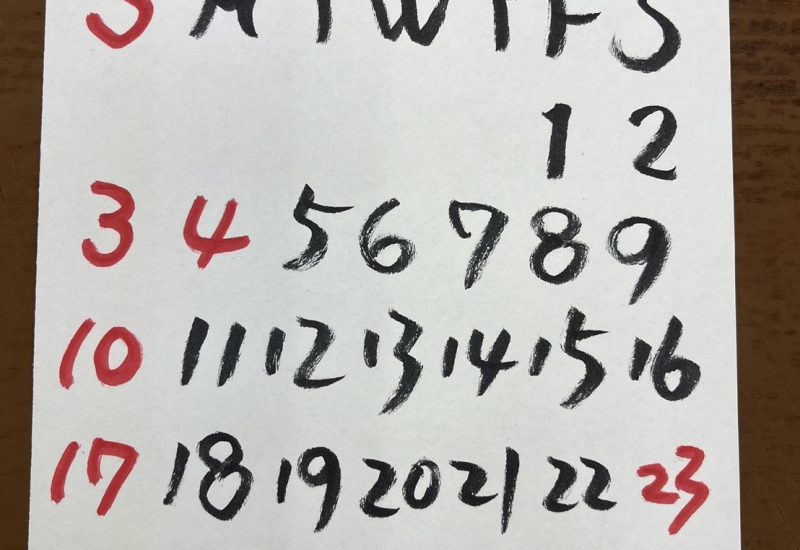 S M T W T F S
1 2
3 4 5 6 7 8 9
10 11 12 13 14 15 16
17 18 19 20 21 22 23